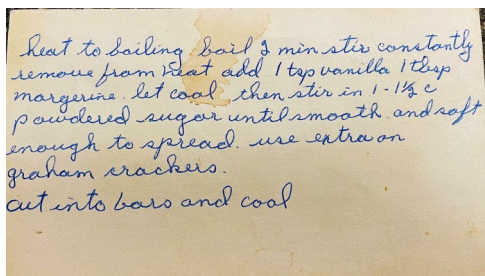 heat to boiling boil 2 min stir constantly
remove from heat add 1 tsp vanilla 1 tbsp
margerine. let cool then stir in 1 - 1½ c
powdered sugar until smooth and soft
enough to spread. use extra on
graham crackers.
cut into bars and cool